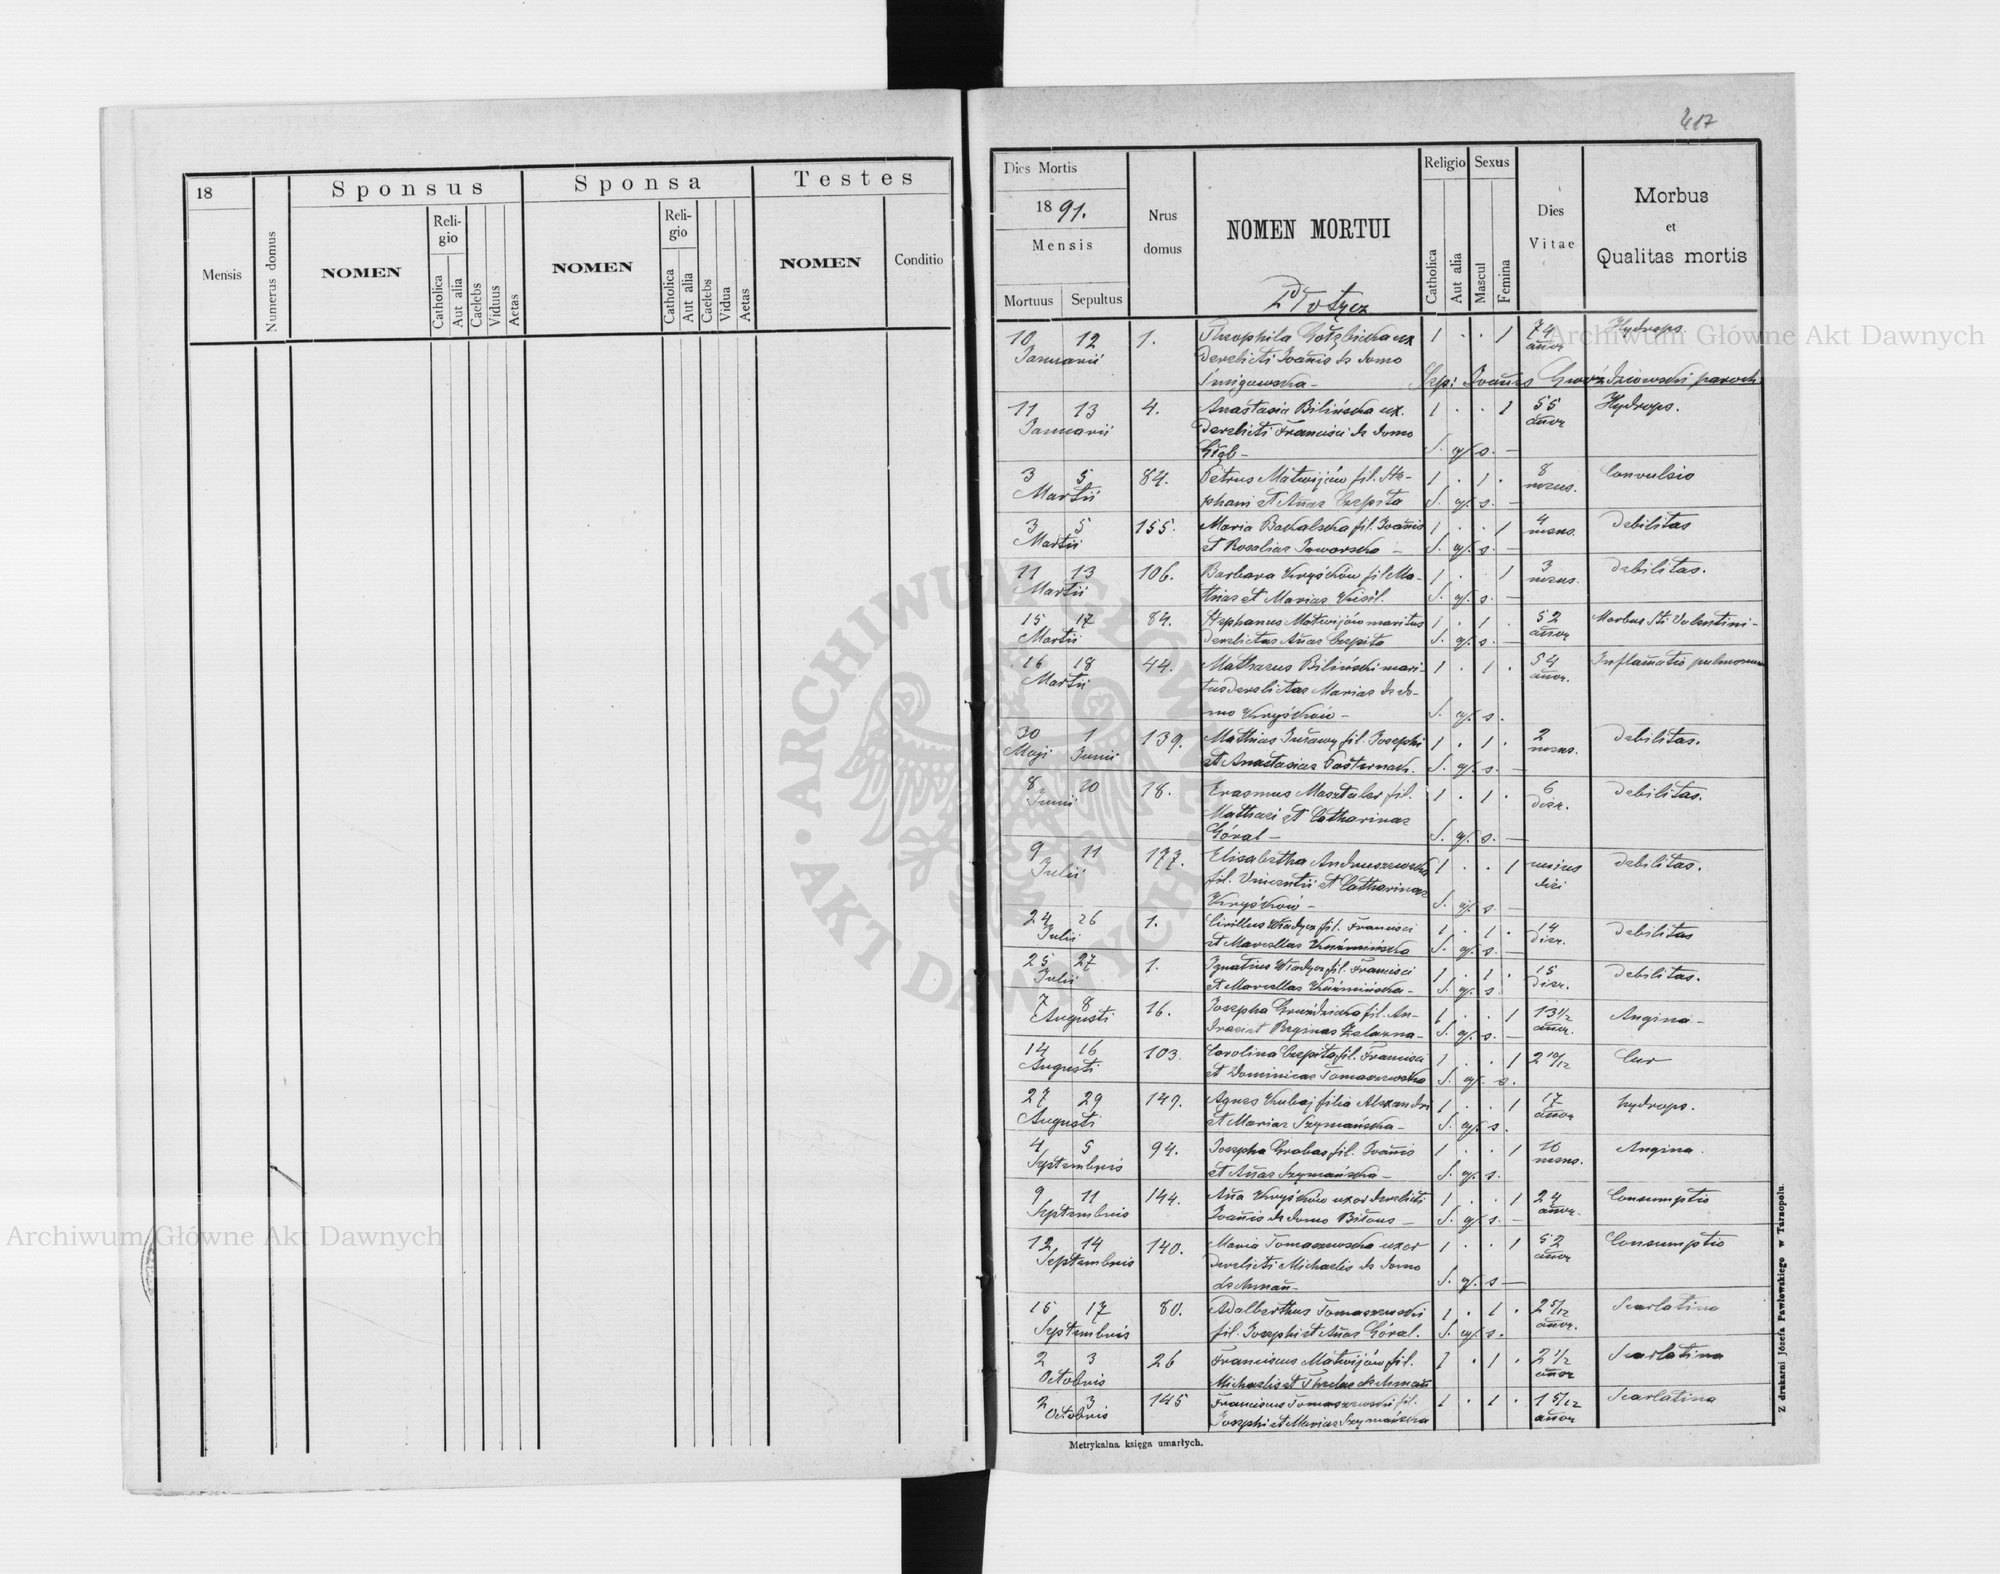 417
18
Mensis
Numerus domus
Sponsus
NOMEN
Religio
Catholica
Aut alia
Caelebs
Viduus
Aetas
Sponsa
NOMEN
Religio
Catholica
Aut alia
Caelebs
Vidua
Aetas
Testes
NOMEN
Conditio
Dies Mortis
1891.
Mensis
Mortuus Sepultus
Nrus
domus
NOMEN MORTUI
Religio
Catholica
Aut alia
Sexus
Mascul
Femina
Dies
Vitae
Morbus
et
Qualitas mortis
10 12 1. Theophila ux 1 . . 1 74 Hydrops.
Januarii derelicti Joañis de domo añor
Śmigowska – Sep: Joañes Gwoździowski paroch.
11 13 4. Anastasia Bilińska ux. 1 . . 1 55 Hydrops.
Januarii derelicti Francisci de domo añor
Głąb – S. q. s. –
3 5 84. Petrus Matwijów fil. Ste- 1 . 1 . 8 Convulsio
Martii phani et Añae Czepita S. q. s. – mens.
3 5 155. Maria Bakalska fil. Joañis 1 . . 1 4 Debilitas
Martii et Rosaliae Jaworska – S. q. s. – mens.
11 13 106. Barbara Kryśków fil Ma- 1 . . 1 3 Debilitas.
Martii thiae et Mariae Kisil. S. q. s. – mens.
15 17 84. Stephanus Matwijów maritus 1 . 1 . 52 Morbus Sti Valentini –
Martii derelictus Añae Czepita S. q. s. – añor
16 18 44. Mathaeus Biliński mari- 1 . 1 . 54 Inflamatio pulmonum
Martii tus derelictae Mariae de do- añor.
mo Kryśków – S. q. s.
30 1 139. Mathias fil. Josephi 1 . 1 . 2 Debilitas.
Maji Junii et Anastasiae Pasternak. S. q. s. – mens.
8 10 18. Erasmus Masztaler fil. 1 . 1 . 6 Debilitas.
Junii Mathaei et Catharinae dier.
Góral – S. q. s. –
9 11 177. Elisabetha Andruszewska 1 . . 1 unius Debilitas.
Julii fil. Vincentii et Catharinae diei
Kryśków – S. q. s. –
24 26 1. Cirillus Władyca fil. Francisci 1 . 1 . 14 Debilitas
Julii et Marcellae Kuźmińska S. q. s. – dier.
25 27 1. Ignatius Władyca fil. Francisci 1 . 1 . 15 Debilitas.
Julii et Marcellae Kuźmińska – S. q. s. dier.
7 8 16. Josepha fil. An- 1 . . 1 13 1/2 Angina –
Augusti dreae et Reginae Żelazna – S. q. s. – añor.
14 16 103. Carolina Czepita fil. Francisci 1 . . 1 2 10/12
Augusti et Dominicae Tomaszewska S. q. s.
27 29 149. Agnes Kubaj filia Alexandri 1 . . 1 17 hydrops.
Augusti et Mariae Szymańska – S. q. s. añor
4 5 94. Josepha Grabas fil. Joañis 1 . . 1 10 Angina.
Septembris et Añae Szymańska – S. q. s. mens.
9 11 144. Aña Kryśków uxor derelicti 1 . . 1 24 Consumptio
Septembris Joañis de domo Biłous – S. q. s. – añor.
12 14 140. Maria Tomaszewska uxor 1 . . 1 52 Consumptio
Septembris derelicti Michaelis de domo añor
S. q. s –
15 17 80. Adalberthus Tomaszewski 1 . 1 . 2 5/12 Scarlatina
Septembris fil. Josephi et Añae Góral. S. q. s. añor.
2 3 26 Franciscus Matwijów fil. 1 . 1 . 2 1/2 Scarlatina
Octobris Michaelis et Theclae añor
2 3 145 Franciscus Tomaszewski fil. 1 . 1 . 1 5/12 Scarlatina
Octobris Josephi et Mariae Szymańska añor
Metrykalna księga umarłych.
Z drukarni Józefa Pawłowskiego w Tarnopolu.
Archiwum Główne Akt Dawnych
Archiwum Główne Akt Dawnych
ARCHIWUM GŁÓWNE AKT DAWNYCH